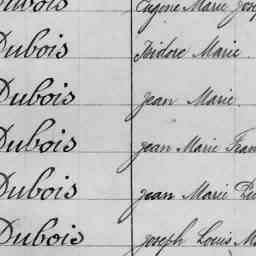 Dubois Eugène Marie Josep
Dubois Isidore Marie.
Dubois Jean Marie.
Dubois Jean Marie Fran
Dubois Jean Marie
Dubois Joseph Louis Ma